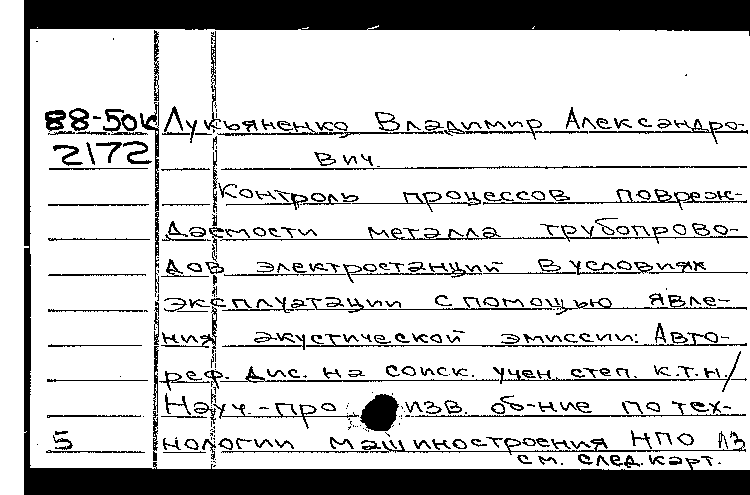 88-50к Лукьяненко Владимир Александро-
2172 вич.
Контроль процессов повреж-
даемости металла трубопрово-
дов электростанций в условиях
эксплуатации с помощью явле-
ния акустической эмиссии: Авто-
реф. дис. на соиск. учен. степ. к.т.н./
Науч.-произв. об-ние по тех-
5 нологии машиностроения НПО
см. след. карт.